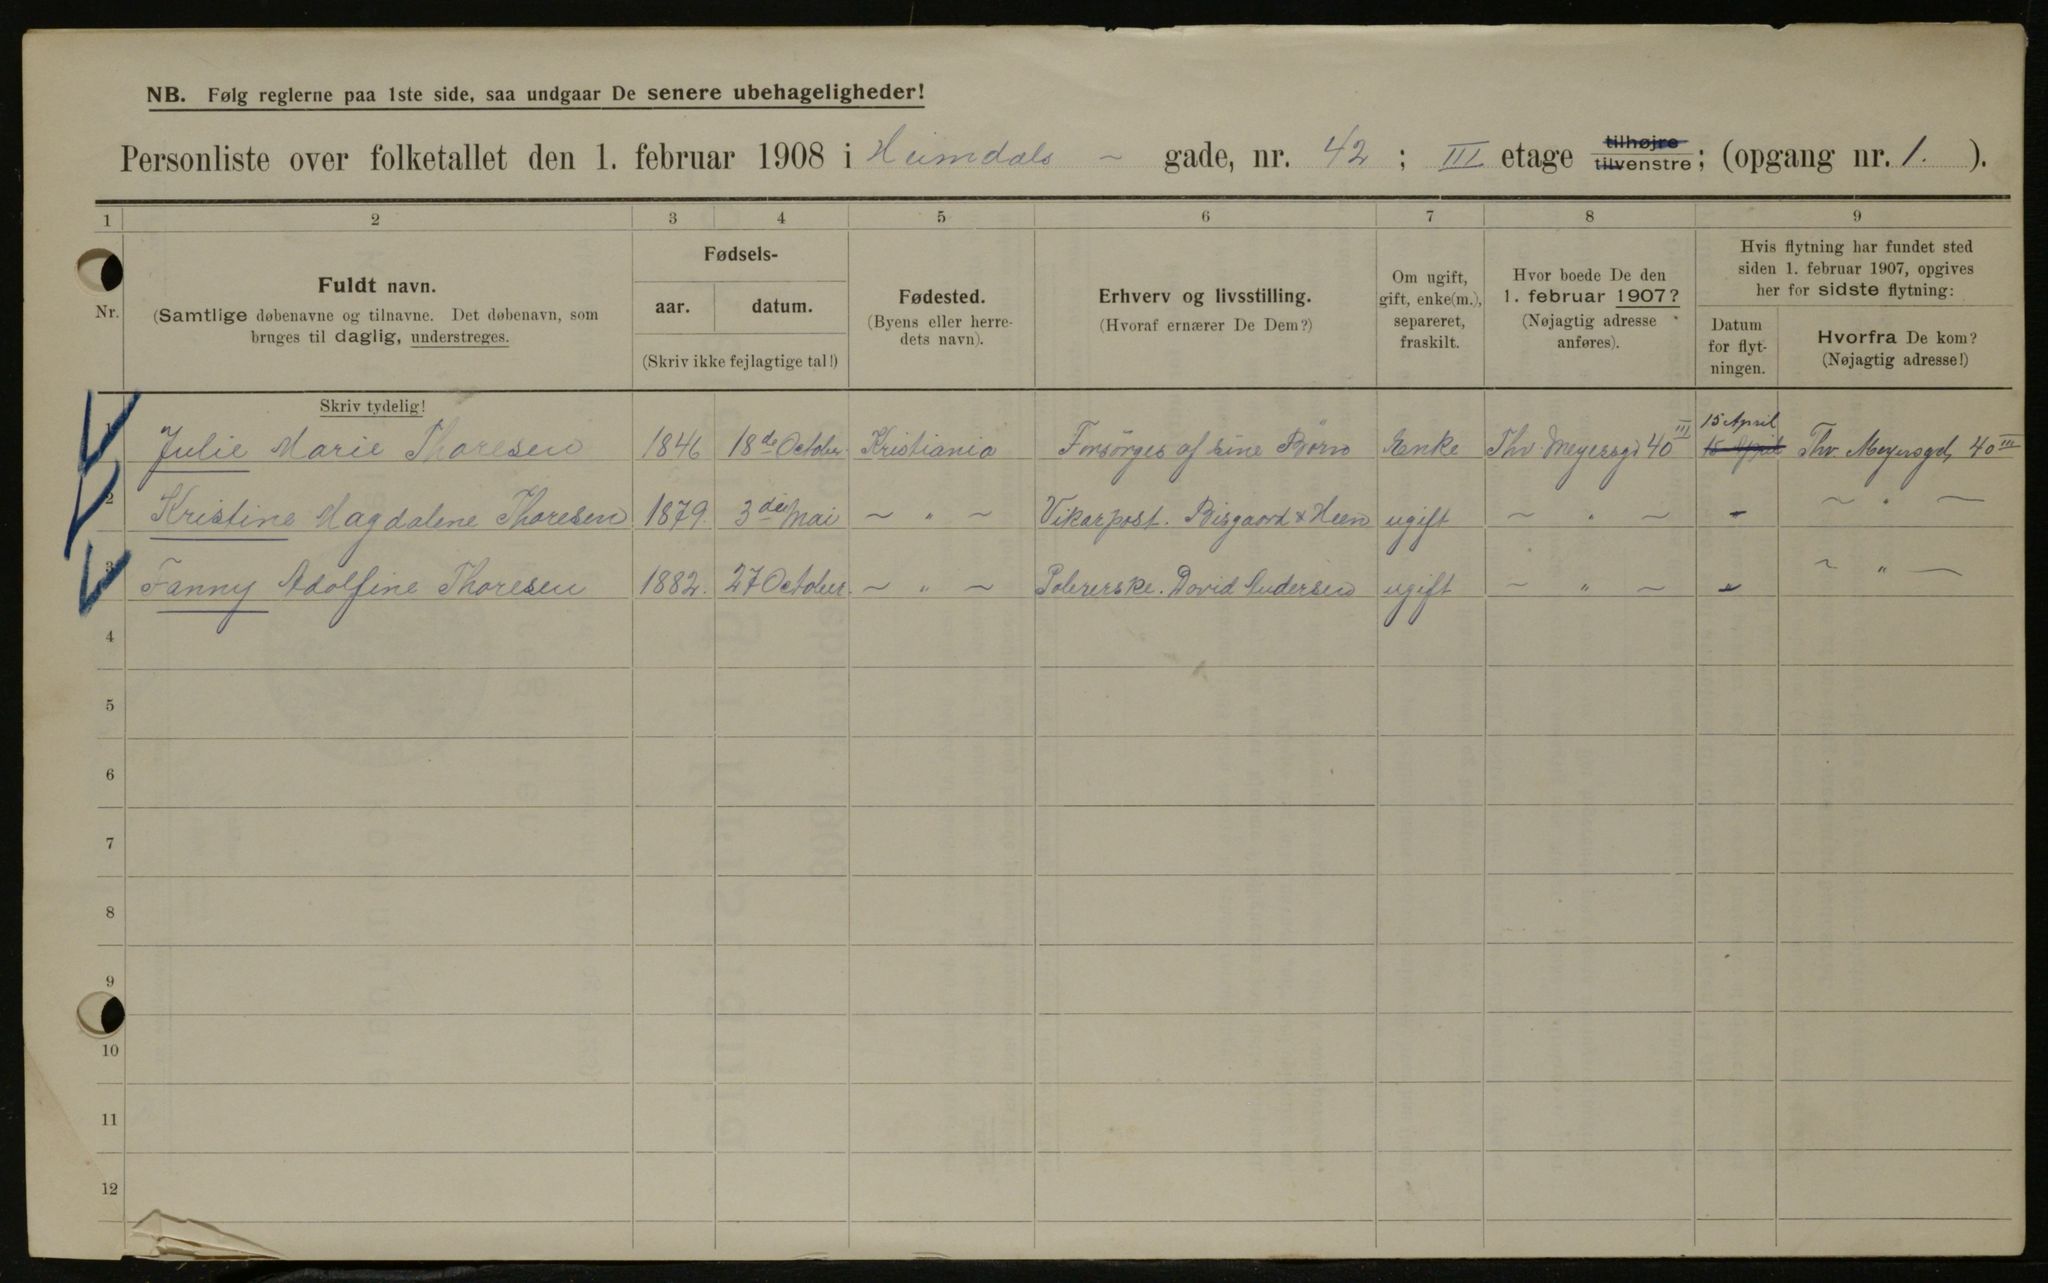 NB. Følg reglerne paa 1ste side, saa undgaar De senere ubehageligheder!
Personliste over folketallet den 1. februar 1908 i Heimdals ~ gade, nr. 42; III etage tilhøjre tilvenstre; (opgang nr. 1. ).
1 2 3 4 5 6 7 8 9
Nr.
Fuldt navn.
(Samtlige døbenavne og tilnavne. Det døbenavn, som
bruges til daglig, understreges.
Skriv tydelig!
Fødsels-
aar. datum.
(Skriv ikke fejlagtige tal!)
Fødested.
(Byens eller herre-
dets navn).
Erhverv og livsstilling.
(Hvoraf ernærer De Dem?)
Om ugift,
gift, enke(m.),
separeret,
fraskilt.
Hvor boede De den
1. februar 1907?
(Nøjagtig adresse
anføres).
Hvis flytning har fundet sted
siden 1. februar 1907, opgives
her for sidste flytning:
Datum
for flyt-
ningen.
Hvorfra De kom?
(Nøjagtig adresse!)
15 April
1 Julie Marie Thoresen 1846 18de October. Kristiania Forsørges af sine Børn Enke Thv. Meyersgd 40 III 15 April Thv. Meyersgd, 40 III
2 Kristine Magdalene Thoresen 1879. 3die Mai ~ " ~ Vikarpost. Bisgaard & Heen ugift ~ " ~ ~ ~ " ~
3 Fanny Adolfine Thoresen 1882. 27 October. ~ " ~ Polererske. David Andersen ugift ~ " ~ ~ ~ " ~
4
5
6
7
8
9
10
11
12